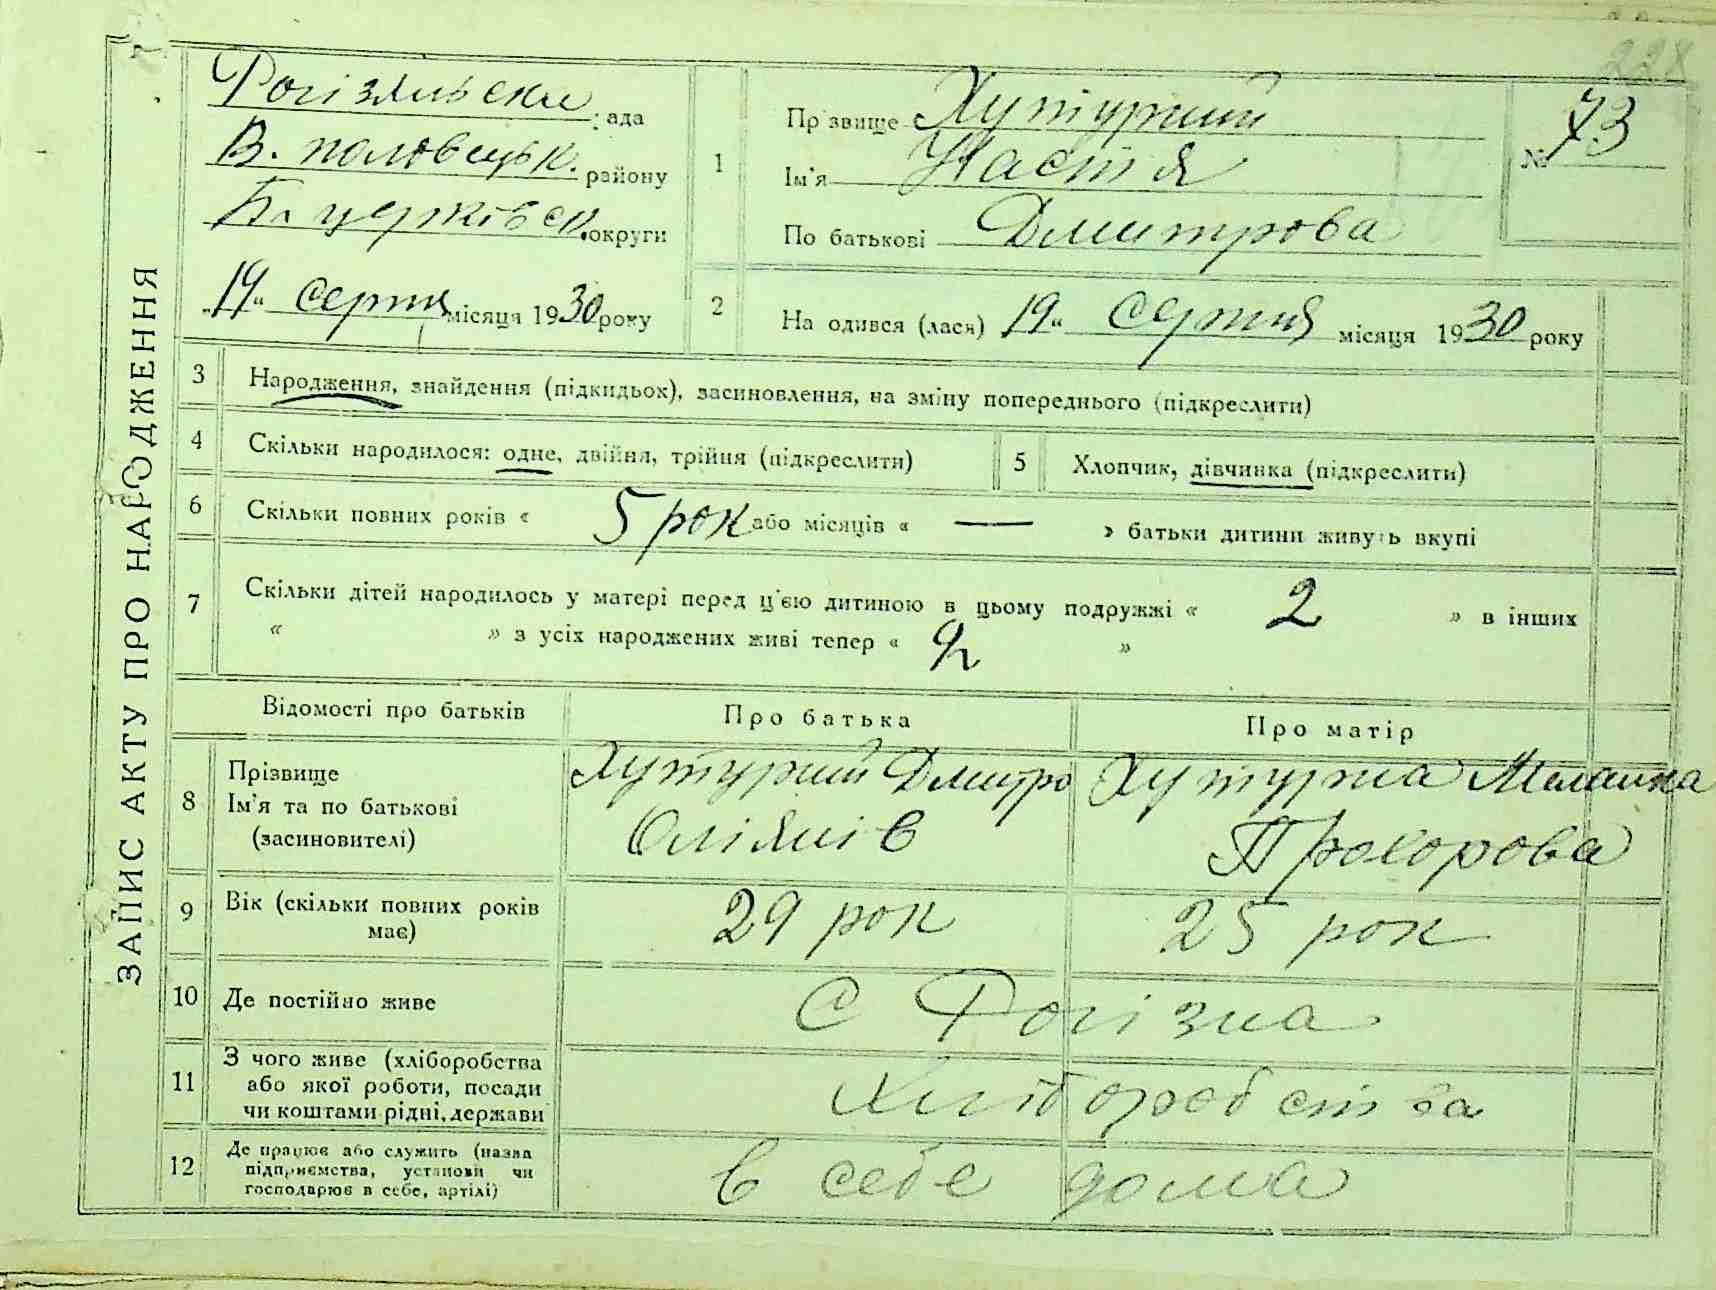 228
Рогізянська рада
В. половецьк. району
Б. церківськ. округи
"19" серпня місяця 1930 року
1
Прізвище Хутурний
Ім'я Настя
По батькові Дмитрова
№ 73
2
На одився (лася) 19" серпня місяця 1930 року
ЗАПИС АКТУ ПРО НАРОДЖЕННЯ
3 Народження, знайдення (підкидьох), засиновлення, на зміну попереднього (підкреслити)
4 Скільки народилося: одне, двійня, трійня (підкреслити)
5 Хлопчик, дівчинка (підкреслити)
6 Скільки повних років « 5 рок або місяців « — » батьки дитини живуть вкупі
7 Скільки дітей народилось у матері перед ц'єю дитиною в цьому подружжі « 2 » в інших
« » з усіх народжених живі тепер « 2 »
Відомості про батьків
Про батька
Про матір
8
Прізвище
Ім'я та по батькові
(засиновителі)
Хутурний Дмитро
Хутурна Меланка
Прохорова
9
Вік (скільки повних років
має)
29 рок
25 рок
10 Де постійно живе
С Рогізна
11
З чого живе (хліборобства
або якої роботи, посади
чи коштами рідні, держави
Хліборобства
12
Де працює або служить (назва
підприємства, установи чи
господарює в себе, артілі)
в себе дома